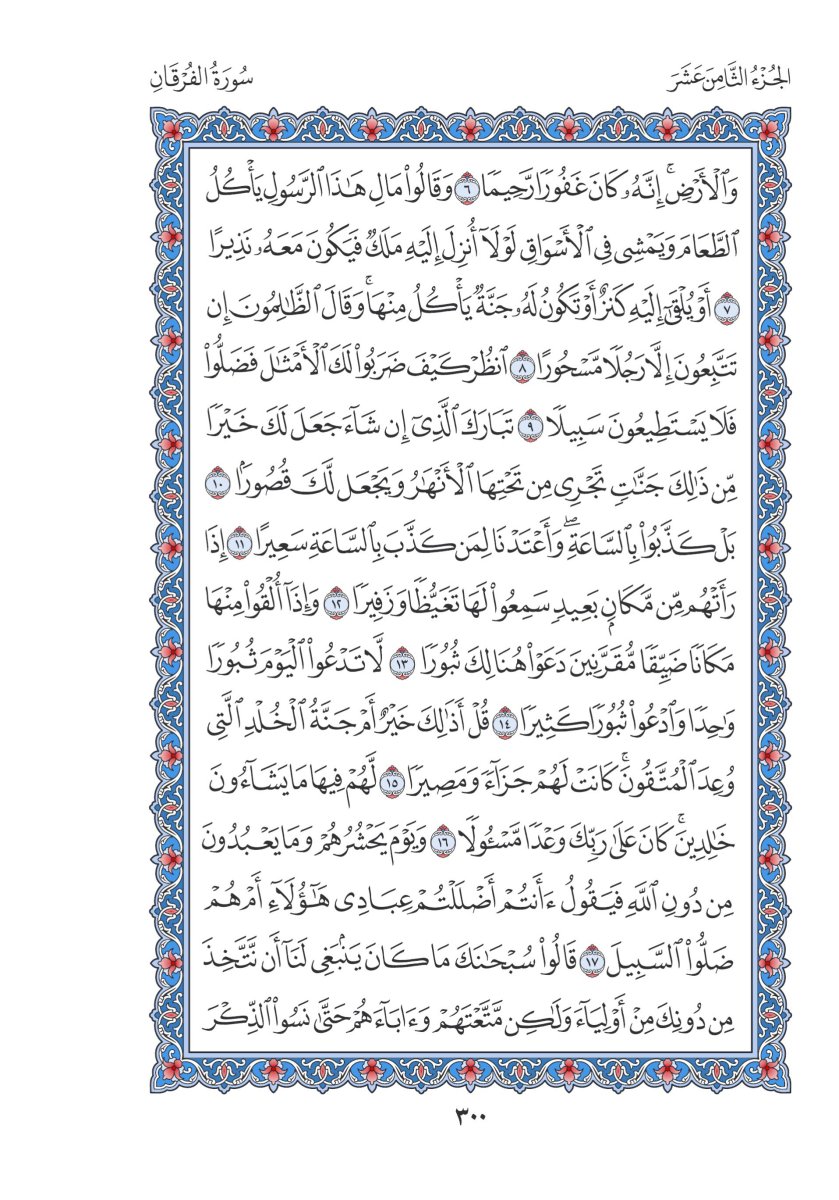 الجُزْءُ الثَّامِنَ عَشَرَ
سُورَةُ الفُرْقَانِ
وَٱلْأَرْضِۚ إِنَّهُۥ كَانَ غَفُورٗا رَّحِيمٗا ٦ وَقَالُواْ مَالِ هَٰذَا ٱلرَّسُولِ يَأۡكُلُ
ٱلطَّعَامَ وَيَمۡشِي فِي ٱلۡأَسۡوَاقِ لَوۡلَآ أُنزِلَ إِلَيۡهِ مَلَكٞ فَيَكُونَ مَعَهُۥ نَذِيرًا
٧ أَوۡ يُلۡقَىٰٓ إِلَيۡهِ كَنزٌ أَوۡ تَكُونُ لَهُۥ جَنَّةٞ يَأۡكُلُ مِنۡهَاۚ وَقَالَ ٱلظَّٰلِمُونَ إِن
تَتَّبِعُونَ إِلَّا رَجُلٗا مَّسۡحُورًا ٨ ٱنظُرۡ كَيۡفَ ضَرَبُواْ لَكَ ٱلۡأَمۡثَٰلَ فَضَلُّواْ
فَلَا يَسۡتَطِيعُونَ سَبِيلٗا ٩ تَبَارَكَ ٱلَّذِيٓ إِن شَآءَ جَعَلَ لَكَ خَيۡرٗا
مِّن ذَٰلِكَ جَنَّٰتٖ تَجۡرِي مِن تَحۡتِهَا ٱلۡأَنۡهَٰرُ وَيَجۡعَل لَّكَ قُصُورَۢا ١٠
بَلۡ كَذَّبُواْ بِٱلسَّاعَةِۖ وَأَعۡتَدۡنَا لِمَن كَذَّبَ بِٱلسَّاعَةِ سَعِيرًا ١١ إِذَا
رَأَتۡهُم مِّن مَّكَانِۭ بَعِيدٖ سَمِعُواْ لَهَا تَغَيُّظٗا وَزَفِيرٗا ١٢ وَإِذَآ أُلۡقُواْ مِنۡهَا
مَكَانٗا ضَيِّقٗا مُّقَرَّنِينَ دَعَوۡاْ هُنَالِكَ ثُبُورٗا ١٣ لَّا تَدۡعُواْ ٱلۡيَوۡمَ ثُبُورٗا
وَٰحِدٗا وَٱدۡعُواْ ثُبُورٗا كَثِيرٗا ١٤ قُلۡ أَذَٰلِكَ خَيۡرٌ أَمۡ جَنَّةُ ٱلۡخُلۡدِ ٱلَّتِي
وُعِدَ ٱلۡمُتَّقُونَۚ كَانَتۡ لَهُمۡ جَزَآءٗ وَمَصِيرٗا ١٥ لَّهُمۡ فِيهَا مَا يَشَآءُونَ
خَٰلِدِينَۚ كَانَ عَلَىٰ رَبِّكَ وَعۡدٗا مَّسۡـُٔولٗا ١٦ وَيَوۡمَ يَحۡشُرُهُمۡ وَمَا يَعۡبُدُونَ
مِن دُونِ ٱللَّهِ فَيَقُولُ ءَأَنتُمۡ أَضۡلَلۡتُمۡ عِبَادِي هَٰٓؤُلَآءِ أَمۡ هُمۡ
ضَلُّواْ ٱلسَّبِيلَ ١٧ قَالُواْ سُبۡحَٰنَكَ مَا كَانَ يَنۢبَغِي لَنَآ أَن نَّتَّخِذَ
مِن دُونِكَ مِنۡ أَوۡلِيَآءَ وَلَٰكِن مَّتَّعۡتَهُمۡ وَءَابَآءَهُمۡ حَتَّىٰ نَسُواْ ٱلذِّكۡرَ
٣٠٠